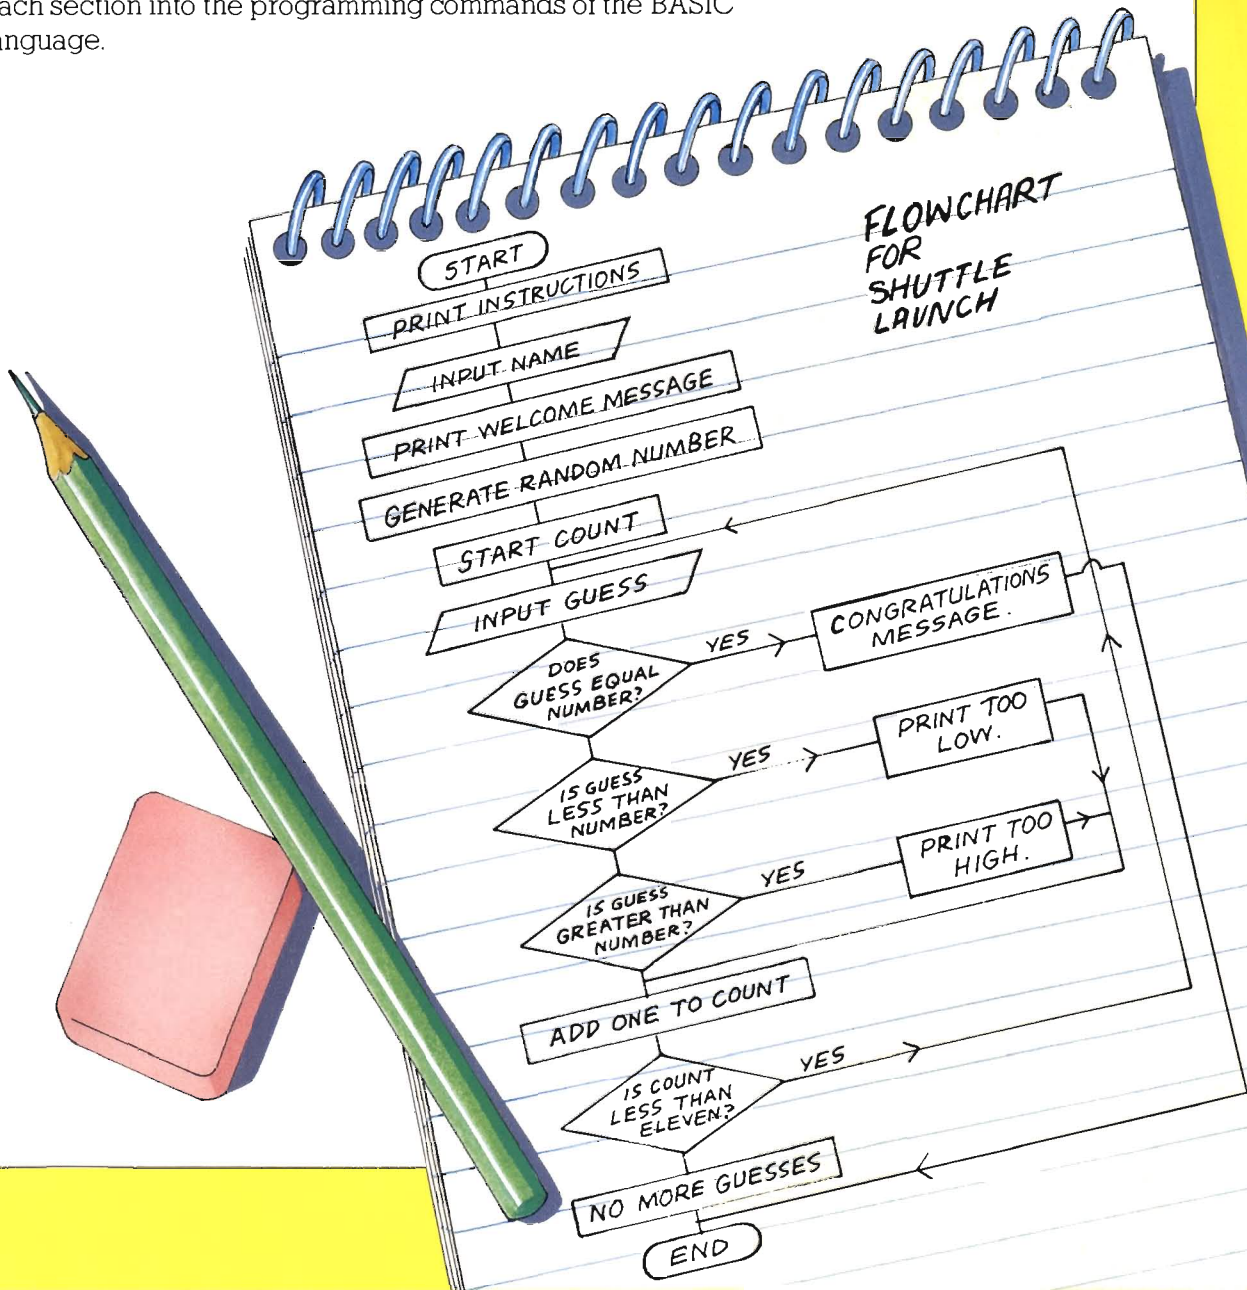 each section into the programming commands of the BASIC
language.
FLOWCHART
FOR
SHUTTLE
LAUNCH
START
PRINT INSTRUCTIONS
INPUT NAME
PRINT WELCOME MESSAGE
GENERATE RANDOM NUMBER
START COUNT
INPUT GUESS
DOES
GUESS EQUAL
NUMBER?
YES
CONGRATULATIONS
MESSAGE.
IS GUESS
LESS THAN
NUMBER?
YES
PRINT TOO
LOW.
IS GUESS
GREATER THAN
NUMBER?
YES
PRINT TOO
HIGH.
ADD ONE TO COUNT
IS COUNT
LESS THAN
ELEVEN?
YES
NO MORE GUESSES
END